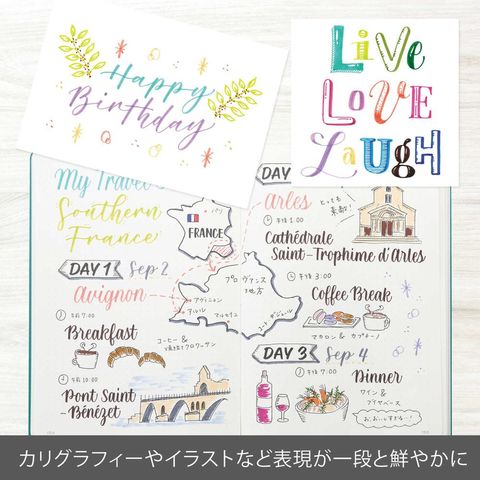 Happy
Birthday
LiVe
LOVE
Laugh
My Travel
Southern
France
DAY 1
Sep 2
Avignon
午前 7:00
Breakfast
コーヒー &
焼きたてクロワッサン
午前 10:00
Pont Saint
-Bénézet
パリ
FRANCE
プロヴァンス
地方
アヴィニョン
アルル
マルセイユ
コートダジュール
DAY
Arles
とっても
素敵!
午後 1:00
Cathédrale
Saint-Trophime d'Arles
午後 3:00
Coffee Break
マカロン & カプチーノ
DAY 3
Sep 4
午後 7:00
Dinner
ワイン &
ブイヤベース
おいしすぎる…!
カリグラフィーやイラストなど表現が一段と鮮やかに